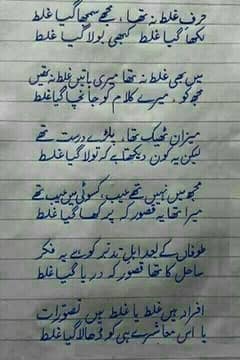 حرفِ غلط نہ تھا ، مجھے سمجھا گیا غلط
لکھا گیا غلط کبھی بولا گیا غلط
میں بھی غلط نہ تھا میری باتیں غلط نہ تھیں
مجھ کو ، میرے کلام کو جانچا گیا غلط
میزان ٹھیک تھا ، پلڑے درست تھے
لیکن یہ کون دیکھتا ہے کہ تولا گیا غلط
مجھ میں نہیں تھے عیب، کسوٹی میں عیب تھے
میرا تھا یہ قصور کہ پرکھا گیا غلط
طوفاں کے بعد اہلِ تدبر کو ہے یہ فکر
ساحل کا تھا قصور کہ دریا گیا غلط
افراد ہیں غلط یا غلط ہیں تصورات
یا اس معاشرے ہی کو ڈھالا گیا غلط